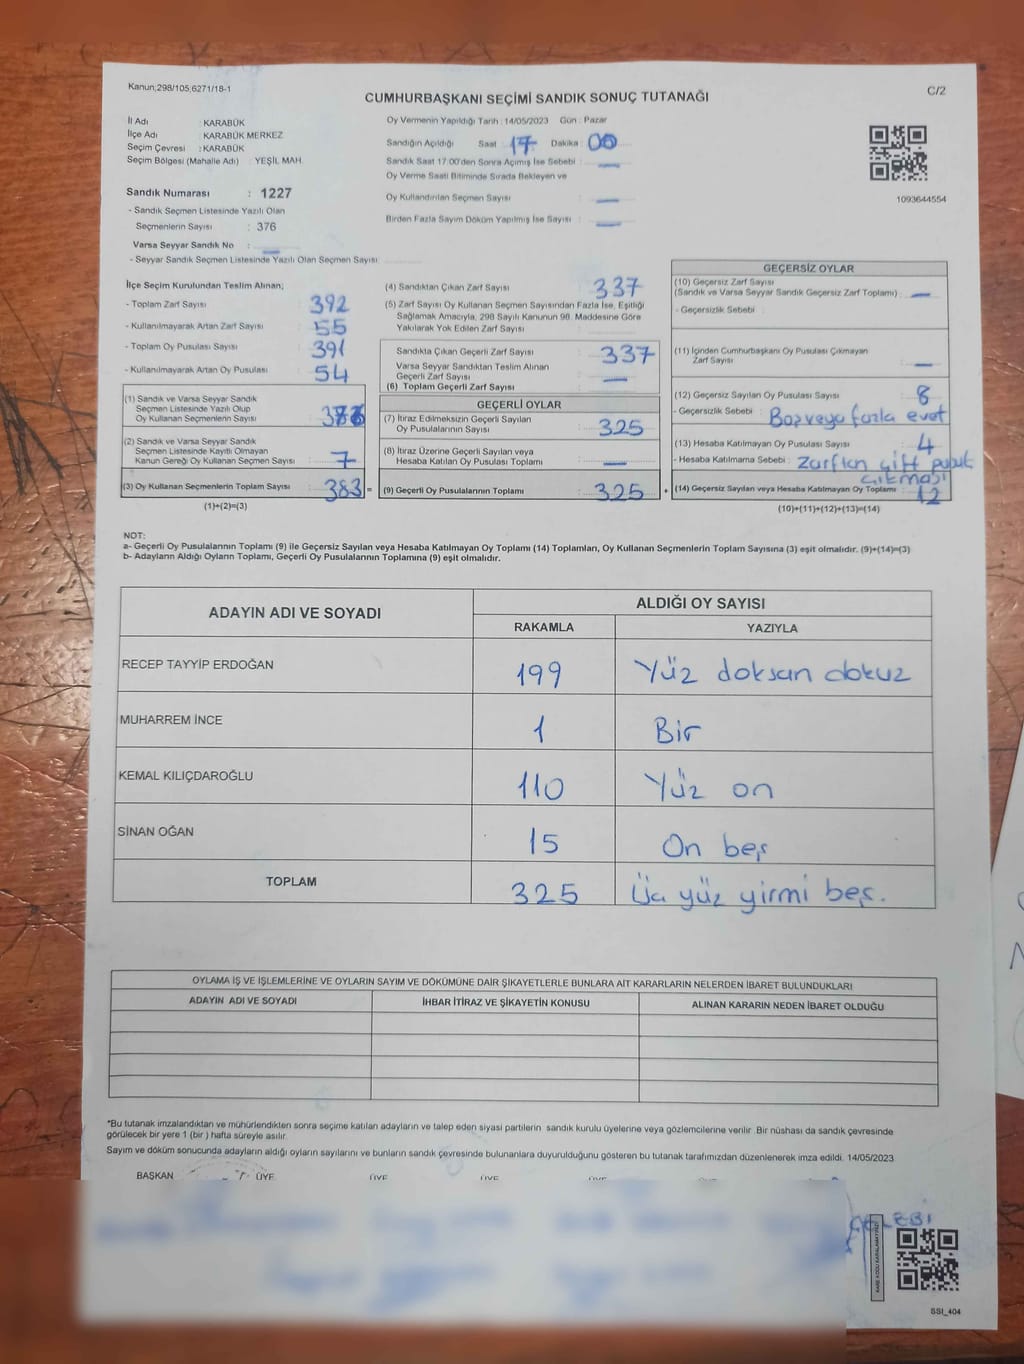 Kanun;298/105,6271/18-1
C/2
CUMHURBAŞKANI SEÇİMİ SANDIK SONUÇ TUTANAĞI
İl Adı : KARABÜK
İlçe Adı : KARABÜK MERKEZ
Seçim Çevresi : KARABÜK
Seçim Bölgesi (Mahalle Adı) : YEŞİL MAH.
Sandık Numarası : 1227
- Sandık Seçmen Listesinde Yazılı Olan
Seçmenlerin Sayısı : 376
Varsa Seyyar Sandık No : —
- Seyyar Sandık Seçmen Listesinde Yazılı Olan Seçmen Sayısı:
Oy Vermenin Yapıldığı Tarih : 14/05/2023 Gün : Pazar
Sandığın Açıldığı Saat 17 Dakika : 00
Sandık Saat 17:00'den Sonra Açımış İse Sebebi : —
Oy Verme Saati Bitiminde Sırada Bekleyen ve
Oy Kullandırılan Seçmen Sayısı : —
Birden Fazla Sayım Döküm Yapılmış İse Sayısı : —
1093644554
İlçe Seçim Kurulundan Teslim Alınan;
- Toplam Zarf Sayısı 392
- Kullanılmayarak Artan Zarf Sayısı 55
- Toplam Oy Pusulası Sayısı 391
- Kullanılmayarak Artan Oy Pusulası 54
(1) Sandık ve Varsa Seyyar Sandık
Seçmen Listesinde Yazılı Olup
Oy Kullanan Seçmenlerin Sayısı
(2) Sandık ve Varsa Seyyar Sandık
Seçmen Listesinde Kayıtlı Olmayan
Kanun Gereği Oy Kullanan Seçmen Sayısı : 7
(3) Oy Kullanan Seçmenlerin Toplam Sayısı 383 =
(1)+(2)=(3)
(4) Sandıktan Çıkan Zarf Sayısı 337
(5) Zarf Sayısı Oy Kullanan Seçmen Sayısından Fazla İse, Eşitliği
Sağlamak Amacıyla, 298 Sayılı Kanunun 98. Maddesine Göre
Yakılarak Yok Edilen Zarf Sayısı :
Sandıkta Çıkan Geçerli Zarf Sayısı 337
Varsa Seyyar Sandıktan Teslim Alınan
Geçerli Zarf Sayısı —
(6) Toplam Geçerli Zarf Sayısı
GEÇERLİ OYLAR
(7) İtiraz Edilmeksizin Geçerli Sayılan
Oy Pusulalarının Sayısı 325
(8) İtiraz Üzerine Geçerli Sayılan veya
Hesaba Katılan Oy Pusulası Toplamı —
(9) Geçerli Oy Pusulalarının Toplamı 325 +
GEÇERSİZ OYLAR
(10) Geçersiz Zarf Sayısı
(Sandık ve Varsa Seyyar Sandık Geçersiz Zarf Toplamı) : —
- Geçersizlik Sebebi :
(11) İçinden Cumhurbaşkanı Oy Pusulası Çıkmayan
Zarf Sayısı —
(12) Geçersiz Sayılan Oy Pusulası Sayısı : 8
- Geçersizlik Sebebi : Boş veya fazla evet
(13) Hesaba Katılmayan Oy Pusulası Sayısı 4
- Hesaba Katılmama Sebebi : Zarftan çift pusula
çıkması
(14) Geçersiz Sayılan veya Hesaba Katılmayan Oy Toplamı 12
(10)+(11)+(12)+(13)=(14)
NOT:
a- Geçerli Oy Pusulalarının Toplamı (9) ile Geçersiz Sayılan veya Hesaba Katılmayan Oy Toplamı (14) Toplamları, Oy Kullanan Seçmenlerin Toplam Sayısına (3) eşit olmalıdır. (9)+(14)=(3)
b- Adayların Aldığı Oyların Toplamı, Geçerli Oy Pusulalarının Toplamına (9) eşit olmalıdır.
ADAYIN ADI VE SOYADI
ALDIĞI OY SAYISI
RAKAMLA YAZIYLA
RECEP TAYYİP ERDOĞAN 199 Yüz doksan dokuz
MUHARREM İNCE 1 Bir
KEMAL KILIÇDAROĞLU 110 Yüz on
SİNAN OĞAN 15 On beş
TOPLAM 325 Üç yüz yirmi beş.
OYLAMA İŞ VE İŞLEMLERİNE VE OYLARIN SAYIM VE DÖKÜMÜNE DAİR ŞİKAYETLERLE BUNLARA AİT KARARLARIN NELERDEN İBARET BULUNDUKLARI
ADAYIN ADI VE SOYADI İHBAR İTİRAZ VE ŞİKAYETİN KONUSU ALINAN KARARIN NEDEN İBARET OLDUĞU
*Bu tutanak imzalandıktan ve mühürlendikten sonra seçime katılan adayların ve talep eden siyasi partilerin sandık kurulu üyelerine veya gözlemcilerine verilir. Bir nüshası da sandık çevresinde
görülecek bir yere 1 (bir ) hafta süreyle asılır.
Sayım ve döküm sonucunda adayların aldığı oyların sayılarını ve bunların sandık çevresinde bulunanlara duyurulduğunu gösteren bu tutanak tarafımızdan düzenlenerek imza edildi. 14/05/2023
BAŞKAN ÜYE ÜYE ÜYE ÜYE
SSI_404